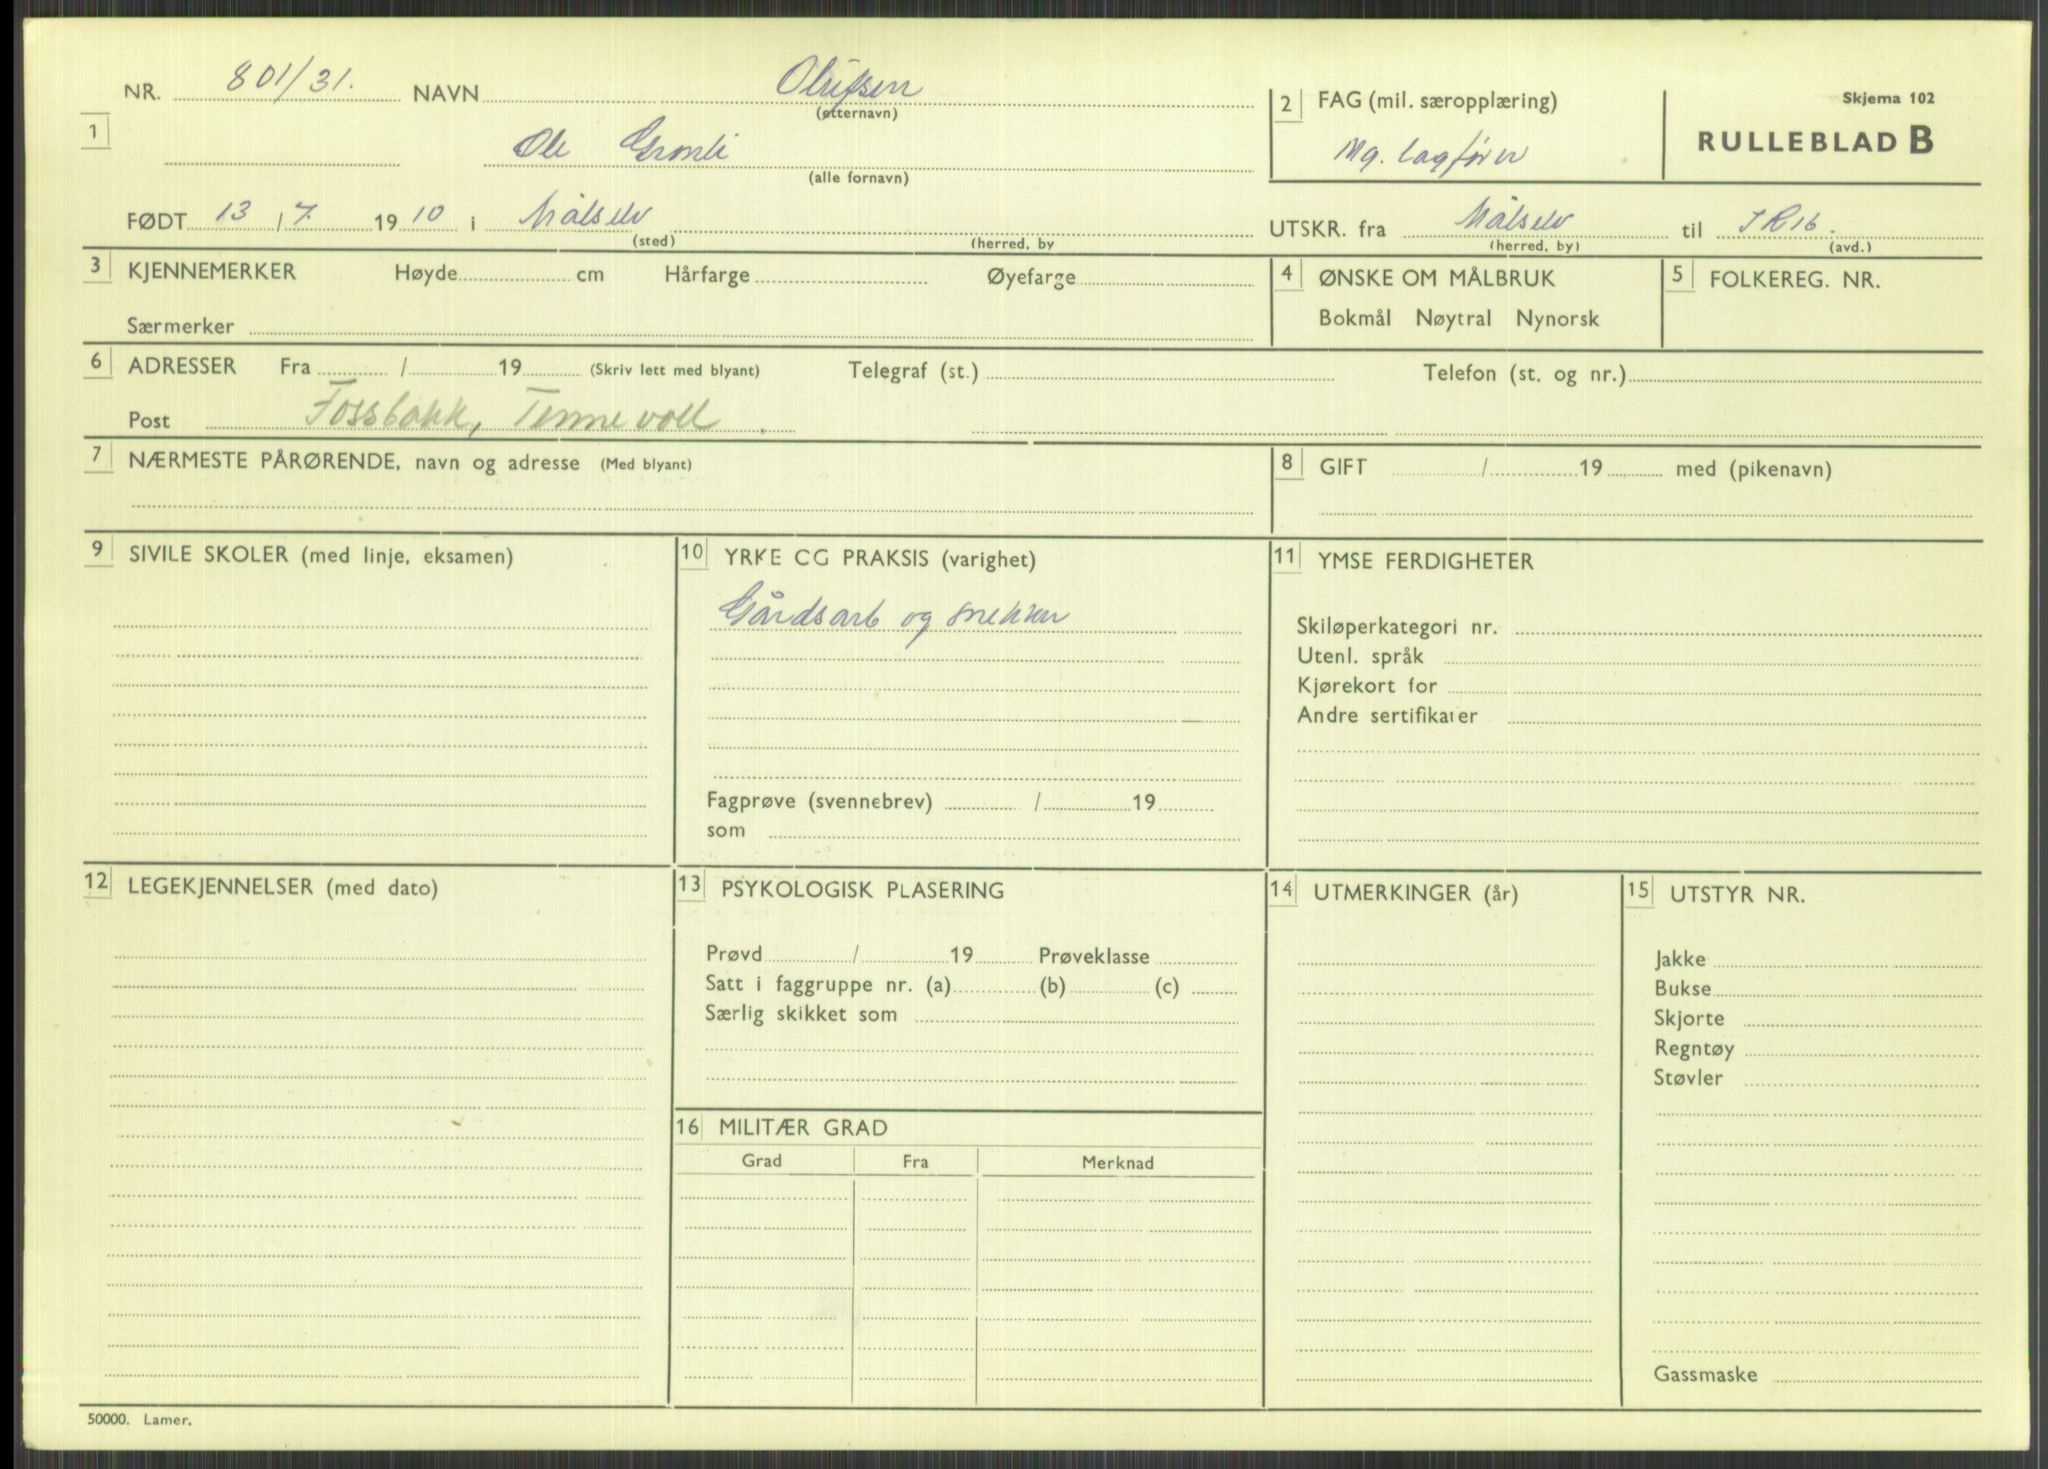 NR. 801/31. NAVN Olufsen
(etternavn)
1
Ole Gronli
(alle fornavn)
FØDT 13 / 7. 1910 i Målselv
(sted) (herred, by
2 FAG (mil. særopplæring)
Mg. lagfører
Skjema 102
RULLEBLAD B
UTSKR. fra Målselv til IR16.
(herred, by) (avd.)
3 KJENNEMERKER Høyde cm Hårfarge Øyefarge
Særmerker
4 ØNSKE OM MÅLBRUK
Bokmål Nøytral Nynorsk
5 FOLKEREG. NR.
6 ADRESSER Fra / 19 (Skriv lett med blyant) Telegraf (st.) Telefon (st. og nr.)
Post Fossbakk, Tennevoll.
7 NÆRMESTE PÅRØRENDE, navn og adresse (Med blyant)
8 GIFT / 19 med (pikenavn)
9 SIVILE SKOLER (med linje, eksamen)
10 YRKE CG PRAKSIS (varighet)
Gårdsarb og snekker
Fagprøve (svennebrev) / 19
som
11 YMSE FERDIGHETER
Skiløperkategori nr.
Utenl. språk
Kjørekort for
Andre sertifikater
12 LEGEKJENNELSER (med dato)
13 PSYKOLOGISK PLASERING
Prøvd / 19 Prøveklasse
Satt i faggruppe nr. (a) (b) (c)
Særlig skikket som
14 UTMERKINGER (år)
15 UTSTYR NR.
Jakke
Bukse
Skjorte
Regntøy
Støvler
Gassmaske
16 MILITÆR GRAD
Grad Fra Merknad
50000. Lamer.